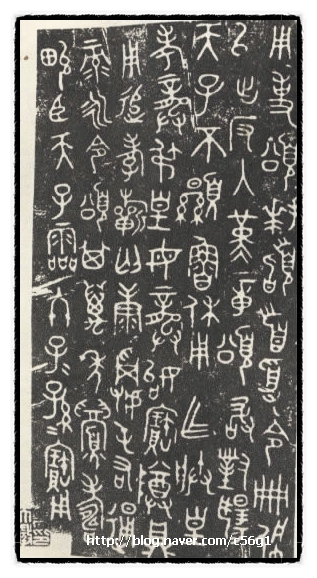 用事頌拜𩒨首受令冊佩
以出反入堇章頌敢對揚
天子不顯魯休用乍朕皇
考龏弔皇母龏始寶尊鼎
用追孝𣄨匄康𩛥屯右通
彔永令頌其萬年眉壽
畯臣天子霝冬子=孫=寶用
http://blog.naver.com/c56g1